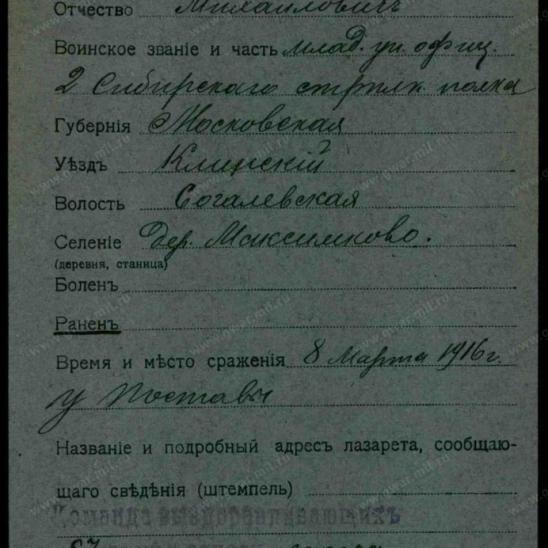 Отчество Михайловичъ
Воинское званіе и часть млад. ун. офиц.
2 Сибирскаго стрѣлк. полка
Губернія Московская
Уѣздъ Клинскій
Волость Согалевская
Селеніе дер. Максимково.
(деревня, станица)
Боленъ
Раненъ
Время и мѣсто сраженія 8 Марта 1916 г.
у Поставы
Названіе и подробный адресъ лазарета, сообщаю-
щаго свѣдѣнія (штемпель)
Команда выздоравливающихъ